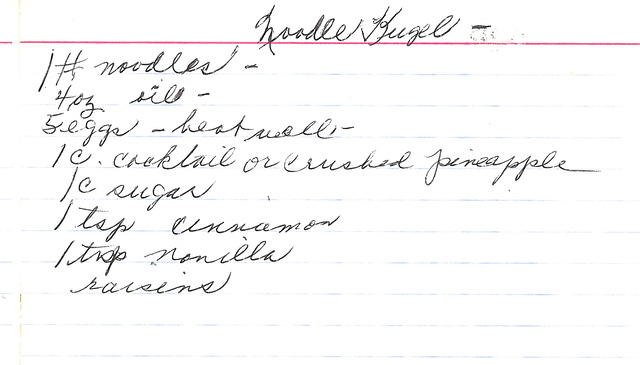 Noodle Kugel -
1 # noodles -
4oz oil -
5 eggs - beat well -
1 c. cocktail or crushed pineapple
1 c sugar
1 tsp cinnamon
1 tsp vanilla
raisins